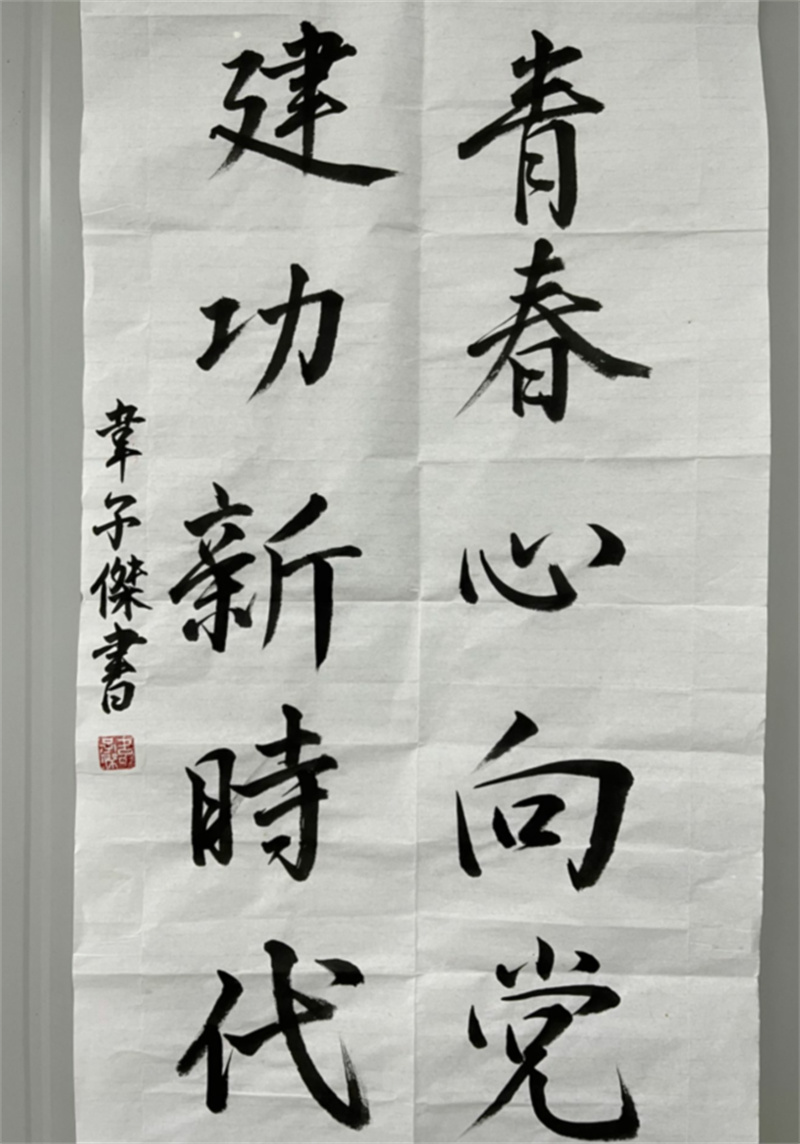 青春心向党
建功新時代
韋子傑書